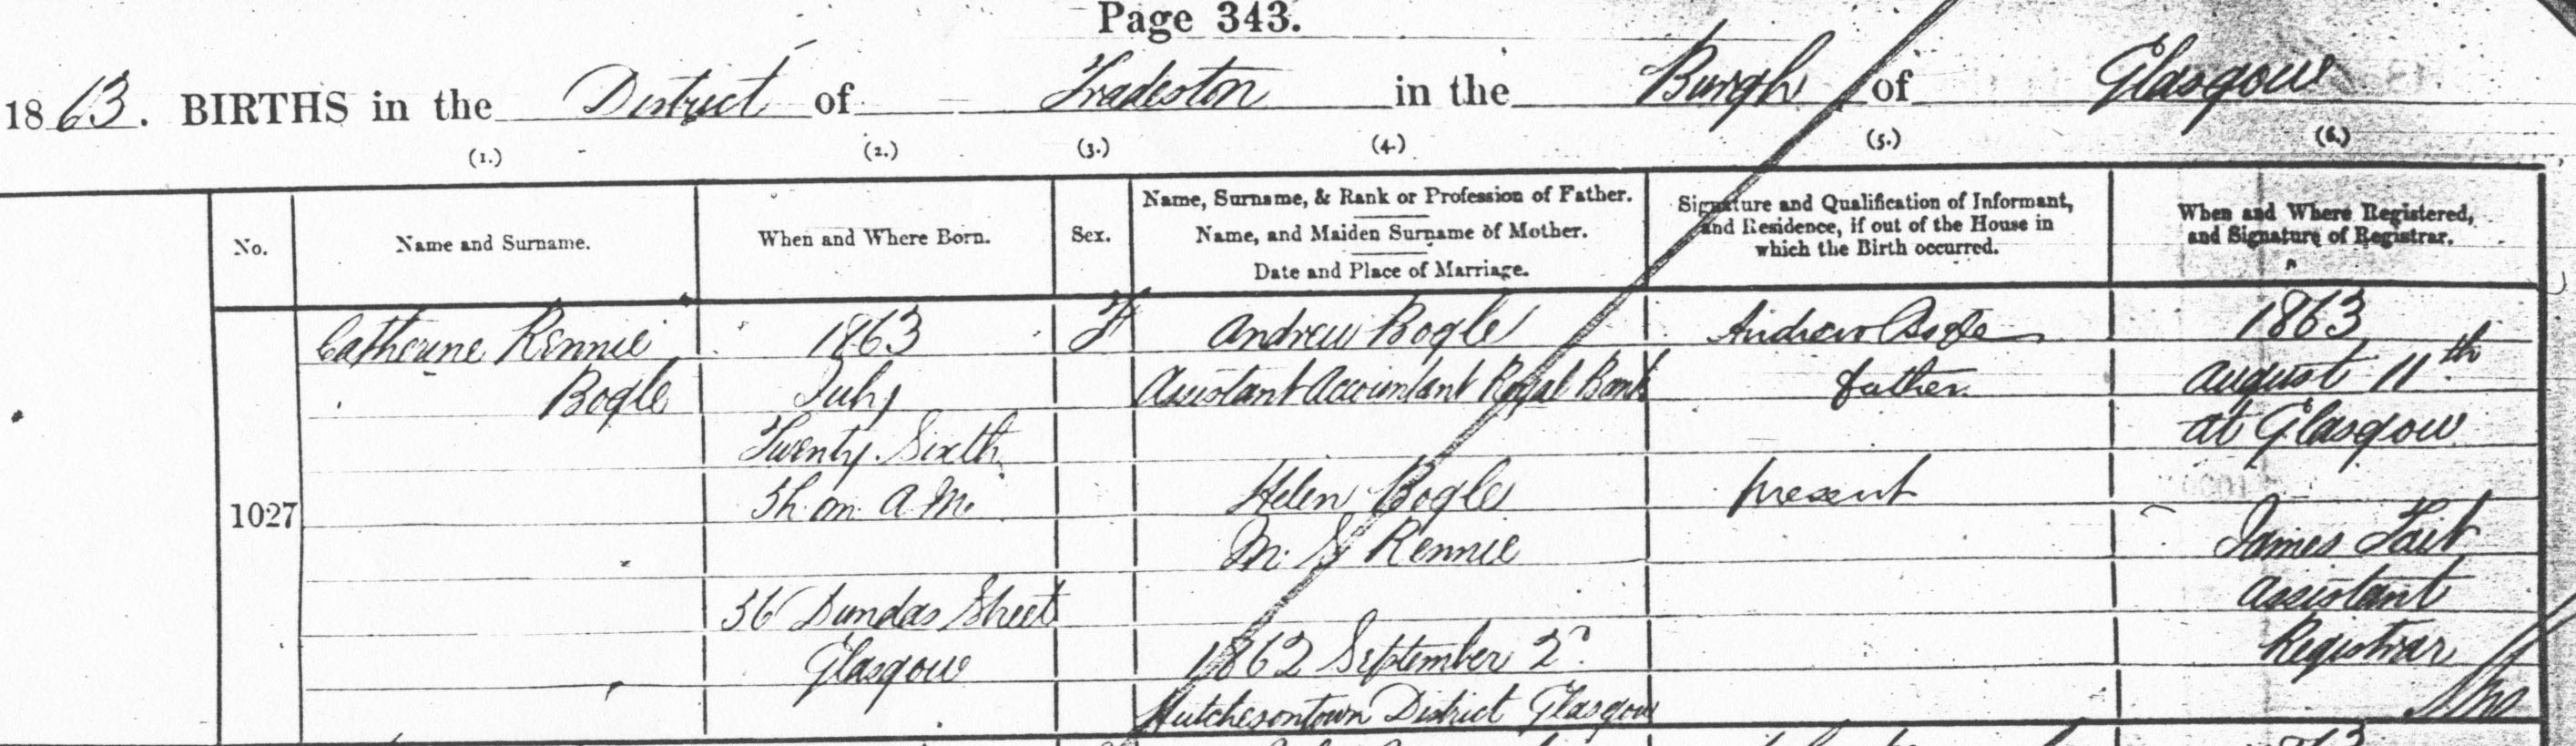 Page 343.
1863. BIRTHS in the District of Tradeston in the Burgh of Glasgow
(1.) (2.) (3.) (4.) (5.) (6.)
No.
Name and Surname.
When and Where Born.
Sex.
Name, Surname, & Rank or Profession of Father.
Name, and Maiden Surname of Mother.
Date and Place of Marriage.
Signature and Qualification of Informant,
and Residence, if out of the House in
which the Birth occurred.
When and Where Registered,
and Signature of Registrar.
1027
Catherine Rennie
Bogle
1863
July
Twenty Sixth
5h. 0m. A.M.
56 Dundas Street
Glasgow
F
Andrew Bogle
Assistant Accountant Royal Bank
Helen Bogle
M. S. Rennie
1862 September 2d
Hutchesontown District Glasgow
Andrew Bogle
father
present
1863
August 11th
at Glasgow
James Tait
Assistant
Registrar